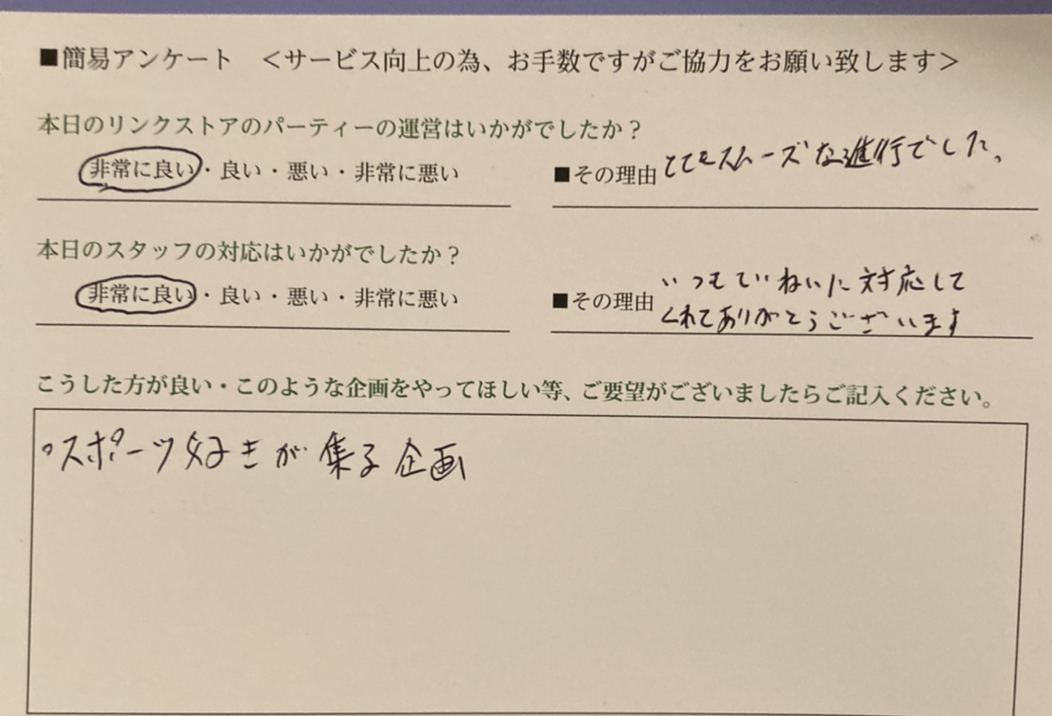 ■簡易アンケート <サービス向上の為、お手数ですがご協力をお願い致します>
本日のリンクストアのパーティーの運営はいかがでしたか?
非常に良い・良い・悪い・非常に悪い ■その理由 とてもスムーズな進行でした。
本日のスタッフの対応はいかがでしたか?
非常に良い・良い・悪い・非常に悪い ■その理由 いつもていねいに対応して
くれてありがとうございます
こうした方が良い・このような企画をやってほしい等、ご要望がございましたらご記入ください。
。スポーツ好きが集る企画